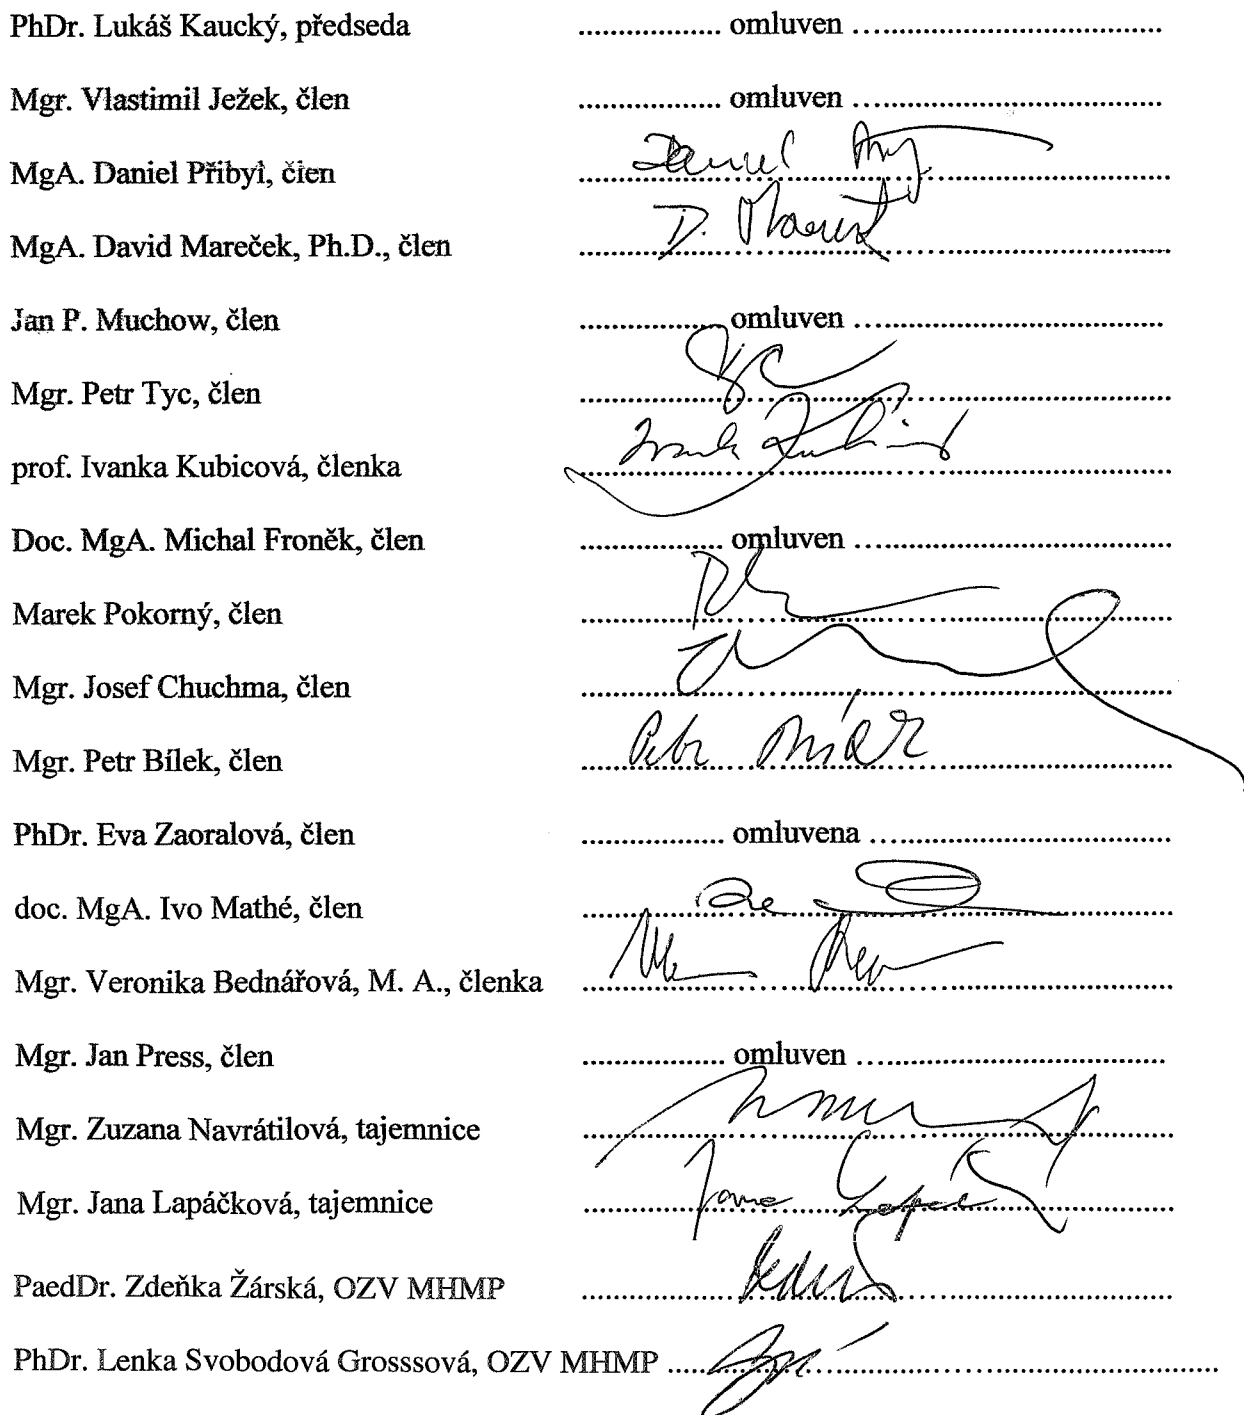 PhDr. Lukáš Kaucký, předseda .................. omluven ......................................
Mgr. Vlastimil Ježek, člen .................. omluven ......................................
MgA. Daniel Přibyl, člen Daniel
MgA. David Mareček, Ph.D., člen D.
Jan P. Muchow, člen .................. omluven ......................................
Mgr. Petr Tyc, člen
prof. Ivanka Kubicová, členka
Doc. MgA. Michal Froněk, člen .................. omluven ......................................
Marek Pokorný, člen
Mgr. Josef Chuchma, člen
Mgr. Petr Bílek, člen Petr
PhDr. Eva Zaoralová, člen .................. omluvena ......................................
doc. MgA. Ivo Mathé, člen
Mgr. Veronika Bednářová, M. A., členka
Mgr. Jan Press, člen .................. omluven ......................................
Mgr. Zuzana Navrátilová, tajemnice
Mgr. Jana Lapáčková, tajemnice Jana
PaedDr. Zdeňka Žárská, OZV MHMP
PhDr. Lenka Svobodová Grosssová, OZV MHMP